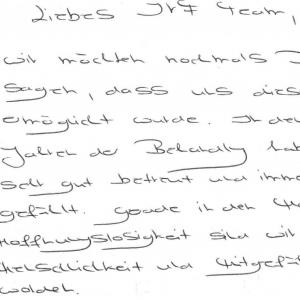 Liebes IVF Team,
wir möchten nochmals
sagen, dass uns dies
ermöglicht wurde. In de
Jahren der Behandlg hab
sehr gut betreut und imme
gefühlt. gerade in den
Hoffnungslosigkeit sind wir
Menschlichkeit und Mitgefü
worden.